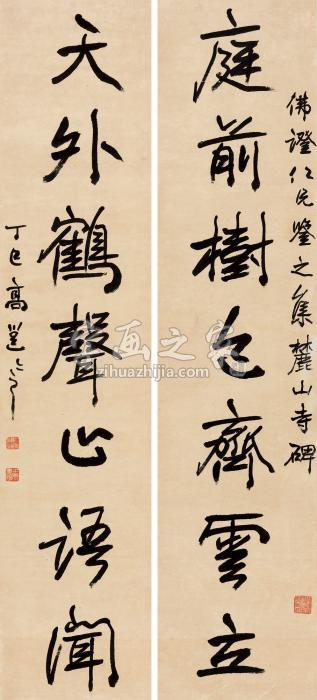 佛證仁兄鑒之集麓山寺碑
庭前樹色齊雲立
天外鶴聲止語聞
丁巳高邕之
字画之家
zihuazhijia.com